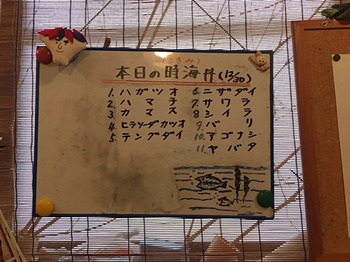 本日の時海丼(12/30)
1. ハガツオ
2. ハマチ
3. カマス
4. ヒラソーダカツオ
5. テングダイ
6. ニザダイ
7. サワラ
8. シイラ
9. バリ
10. アゴナシ
11. ヤバタ